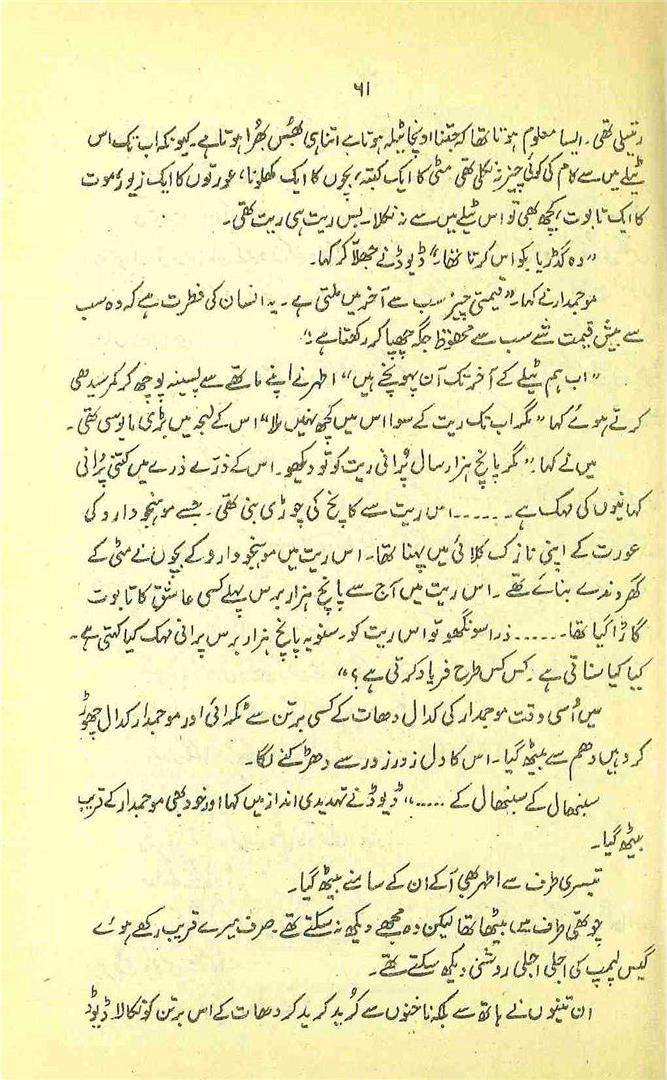 ۶۱
رتیلی تھی۔ ایسا معلوم ہوتا تھا کہ جتنا اونچا ٹیلہ ہوتا ہے اتنا ہی بھُس بھُرا ہوتا ہے۔ کیونکہ اب تک اس
ٹیلے میں سے کام کی کوئی چیز نہ نکلی تھی مٹی کا ایک کتبہ، بچوں کا ایک کھلونا، عورتوں کا ایک زیور، موت
کا ایک تابوت، کچھ بھی تو اس ٹیلے میں سے نہ نکلا۔ بس ریت ہی ریت تھی۔
”وہ گڈریا بکواس کرتا تھا۔“ ڈیوڈ نے جھلّا کر کہا۔
موجمدار نے کہا۔ ”قیمتی چیز سب سے آخر میں ملتی ہے۔ یہ انسان کی فطرت ہے کہ وہ سب
سے بیش قیمت شے سب سے محفوظ جگہ چھپا کر رکھتا ہے؛“
”اب ہم ٹیلے کے آخر تک آن پہونچے ہیں“ اطہر نے اپنے ماتھے سے پسینہ پوچھ کر کمر سیدھی
کرتے ہوئے کہا ”مگر اب تک ریت کے سوا اس میں کچھ نہیں ملا“ اس کے لہجہ میں بڑی مایوسی تھی۔
میں نے کہا۔ ”مگر پانچ ہزار سال پُرانی ریت کو تو دیکھو۔ اس کے ذرّے ذرے میں کتنی پُرانی
کہانیوں کی مہک ہے۔ ۔۔۔۔۔ اس ریت سے کانچ کی چوڑی بنی تھی۔ جسے موہنجوداروکی
عورت کے اپنی نازک کلائی میں پہنا تھا۔ اس ریت میں موہنجوداروکے بچوں نے مٹی کے
گھروندے بنائے تھے۔ اس ریت میں آج سے پانچ ہزار برس پہلے کسی عاشق کا تابوت
گاڑا گیا تھا۔ ۔۔۔۔۔ ذرا سونگھو تو اس ریت کو۔ سنو یہ پانچ ہزار برس پرانی مہک کیا کہتی ہے۔
کیا کیا سناتی ہے۔ کس کس طرح فریاد کرتی ہے؟“
میں اُسی وقت موجمدار کی کدال دھات کے کسی برتن سے ٹکرائی اور موجمدار کدال چھوڑ
کر وہیں دھم سے بیٹھ گیا۔ اس کا دل زور زور سے دھڑکنے لگا۔
سبنھال کے سبنھال کے .....“ ڈیوڈ نے تہدیدی انداز میں کہا اور خود بھی موجمدار کے قریب
بیٹھ گیا۔
تیسری طرف سے اطہر بھی آ کے ان کے سامنے بیٹھ گیا۔
چوتھی طرف میں بیٹھا تھا لیکن وہ مجھے دیکھ نہ سکتے تھے۔ صرف میرے قریب رکھے ہوئے
گیس لیمپ کی اجلی اجلی روشنی دیکھ سکتے تھے۔
ان تینوں نے ہاتھ سے بلکہ ناخنوں سے کُرید کُرید کر دھات کے اس برتن کو نکالا۔ ڈیوڈ